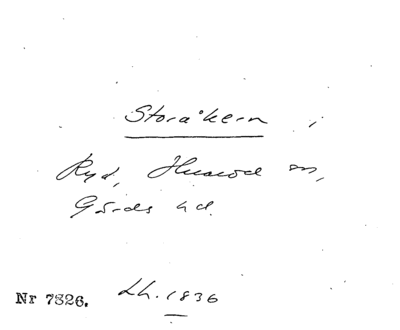 Storåkern i
Ryd, Huaröd sn,
Gärds hd.
Nr 7826. Lh. 1836